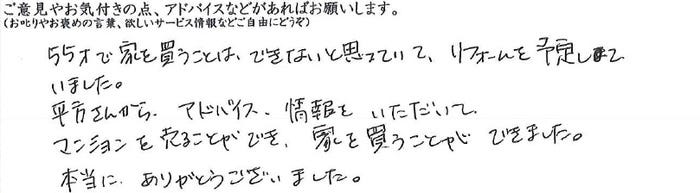 ご意見やお気付きの点、アドバイスなどがあればお願いします。
(お叱りやお褒めの言葉、欲しいサービス情報などご自由にどうぞ)
55才で家を買うことは、できないと思っていて、リフォームを予定して
いました。
平方さんから、アドバイス、情報を いただいて、
マンションを売ることができ、家を買うことが できました。
本当に、ありがとうございました。